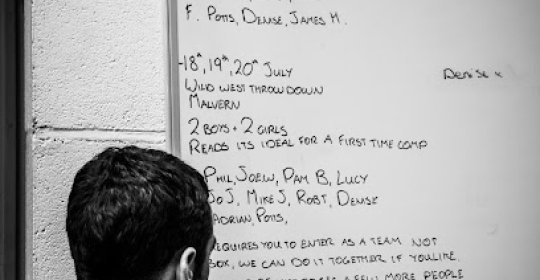 F. Potts, Denise, James H.
-18th, 19th, 20th July
Denise x
Wild West Throwdown
Malvern
2 Boys + 2 Girls
Reads its ideal for a first time comp
Phil, Joew, Pam B, Lucy
Jo J, Mike J, Rob T, Denise
Adrian, Potts,
Requires you to enter as a team not
Box, we can do it together if you like.
a few more people